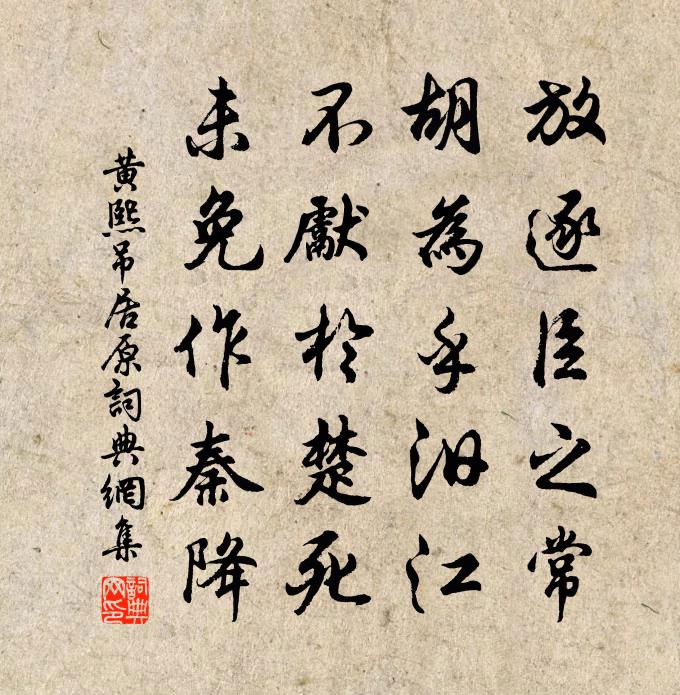 放逐臣之常
胡為乎汨江
不獻於楚死
未免作秦降
黃熙吊居原詞典網集
詞典網印